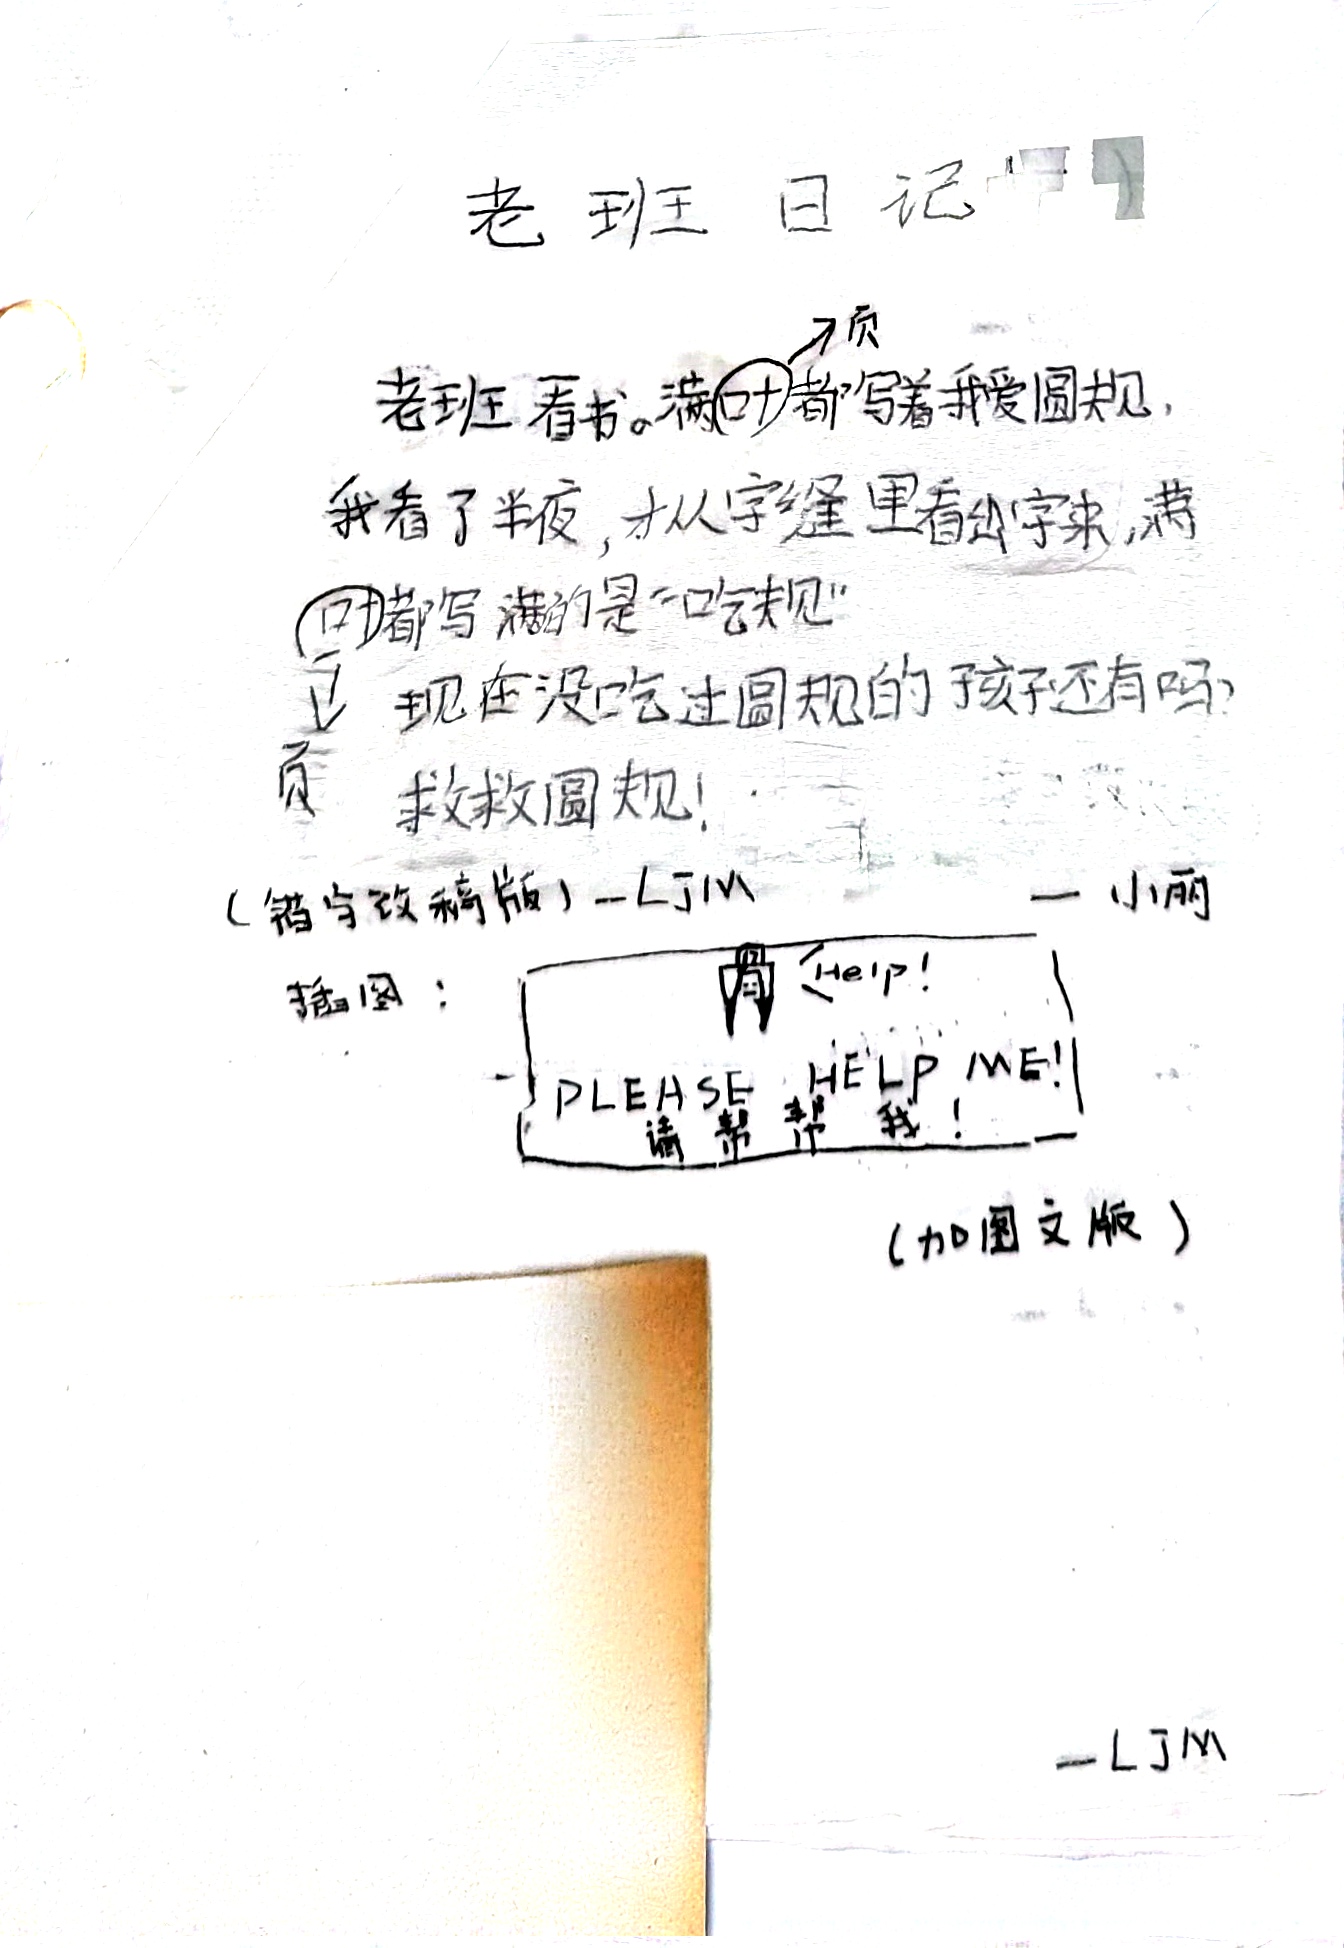 老班日记
页
老班看书。满叶都写着我爱圆规，
我看了半夜，才从字缝里看出字来，满
叶都写满的是“吃规”
页
现在没吃过圆规的孩子还有吗？
救救圆规！
（错字改稿版）—LJM
— 小丽
插图：
Help！
PLEASE HELP ME!
请帮帮我！
（加图文版）
—LJM